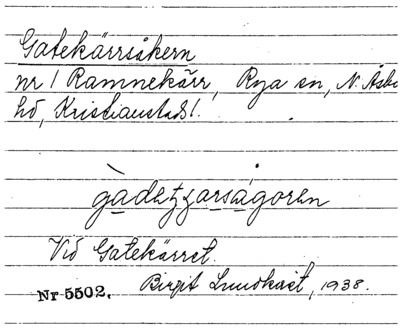 Gatekärrsåkern
nr 1 Ramnekärr, Rya sn, N. Åsbo
hd, Kristianstads l.
Vid Gatekärret.
Birgit Lundkvist, 1938.
Nr 5502.